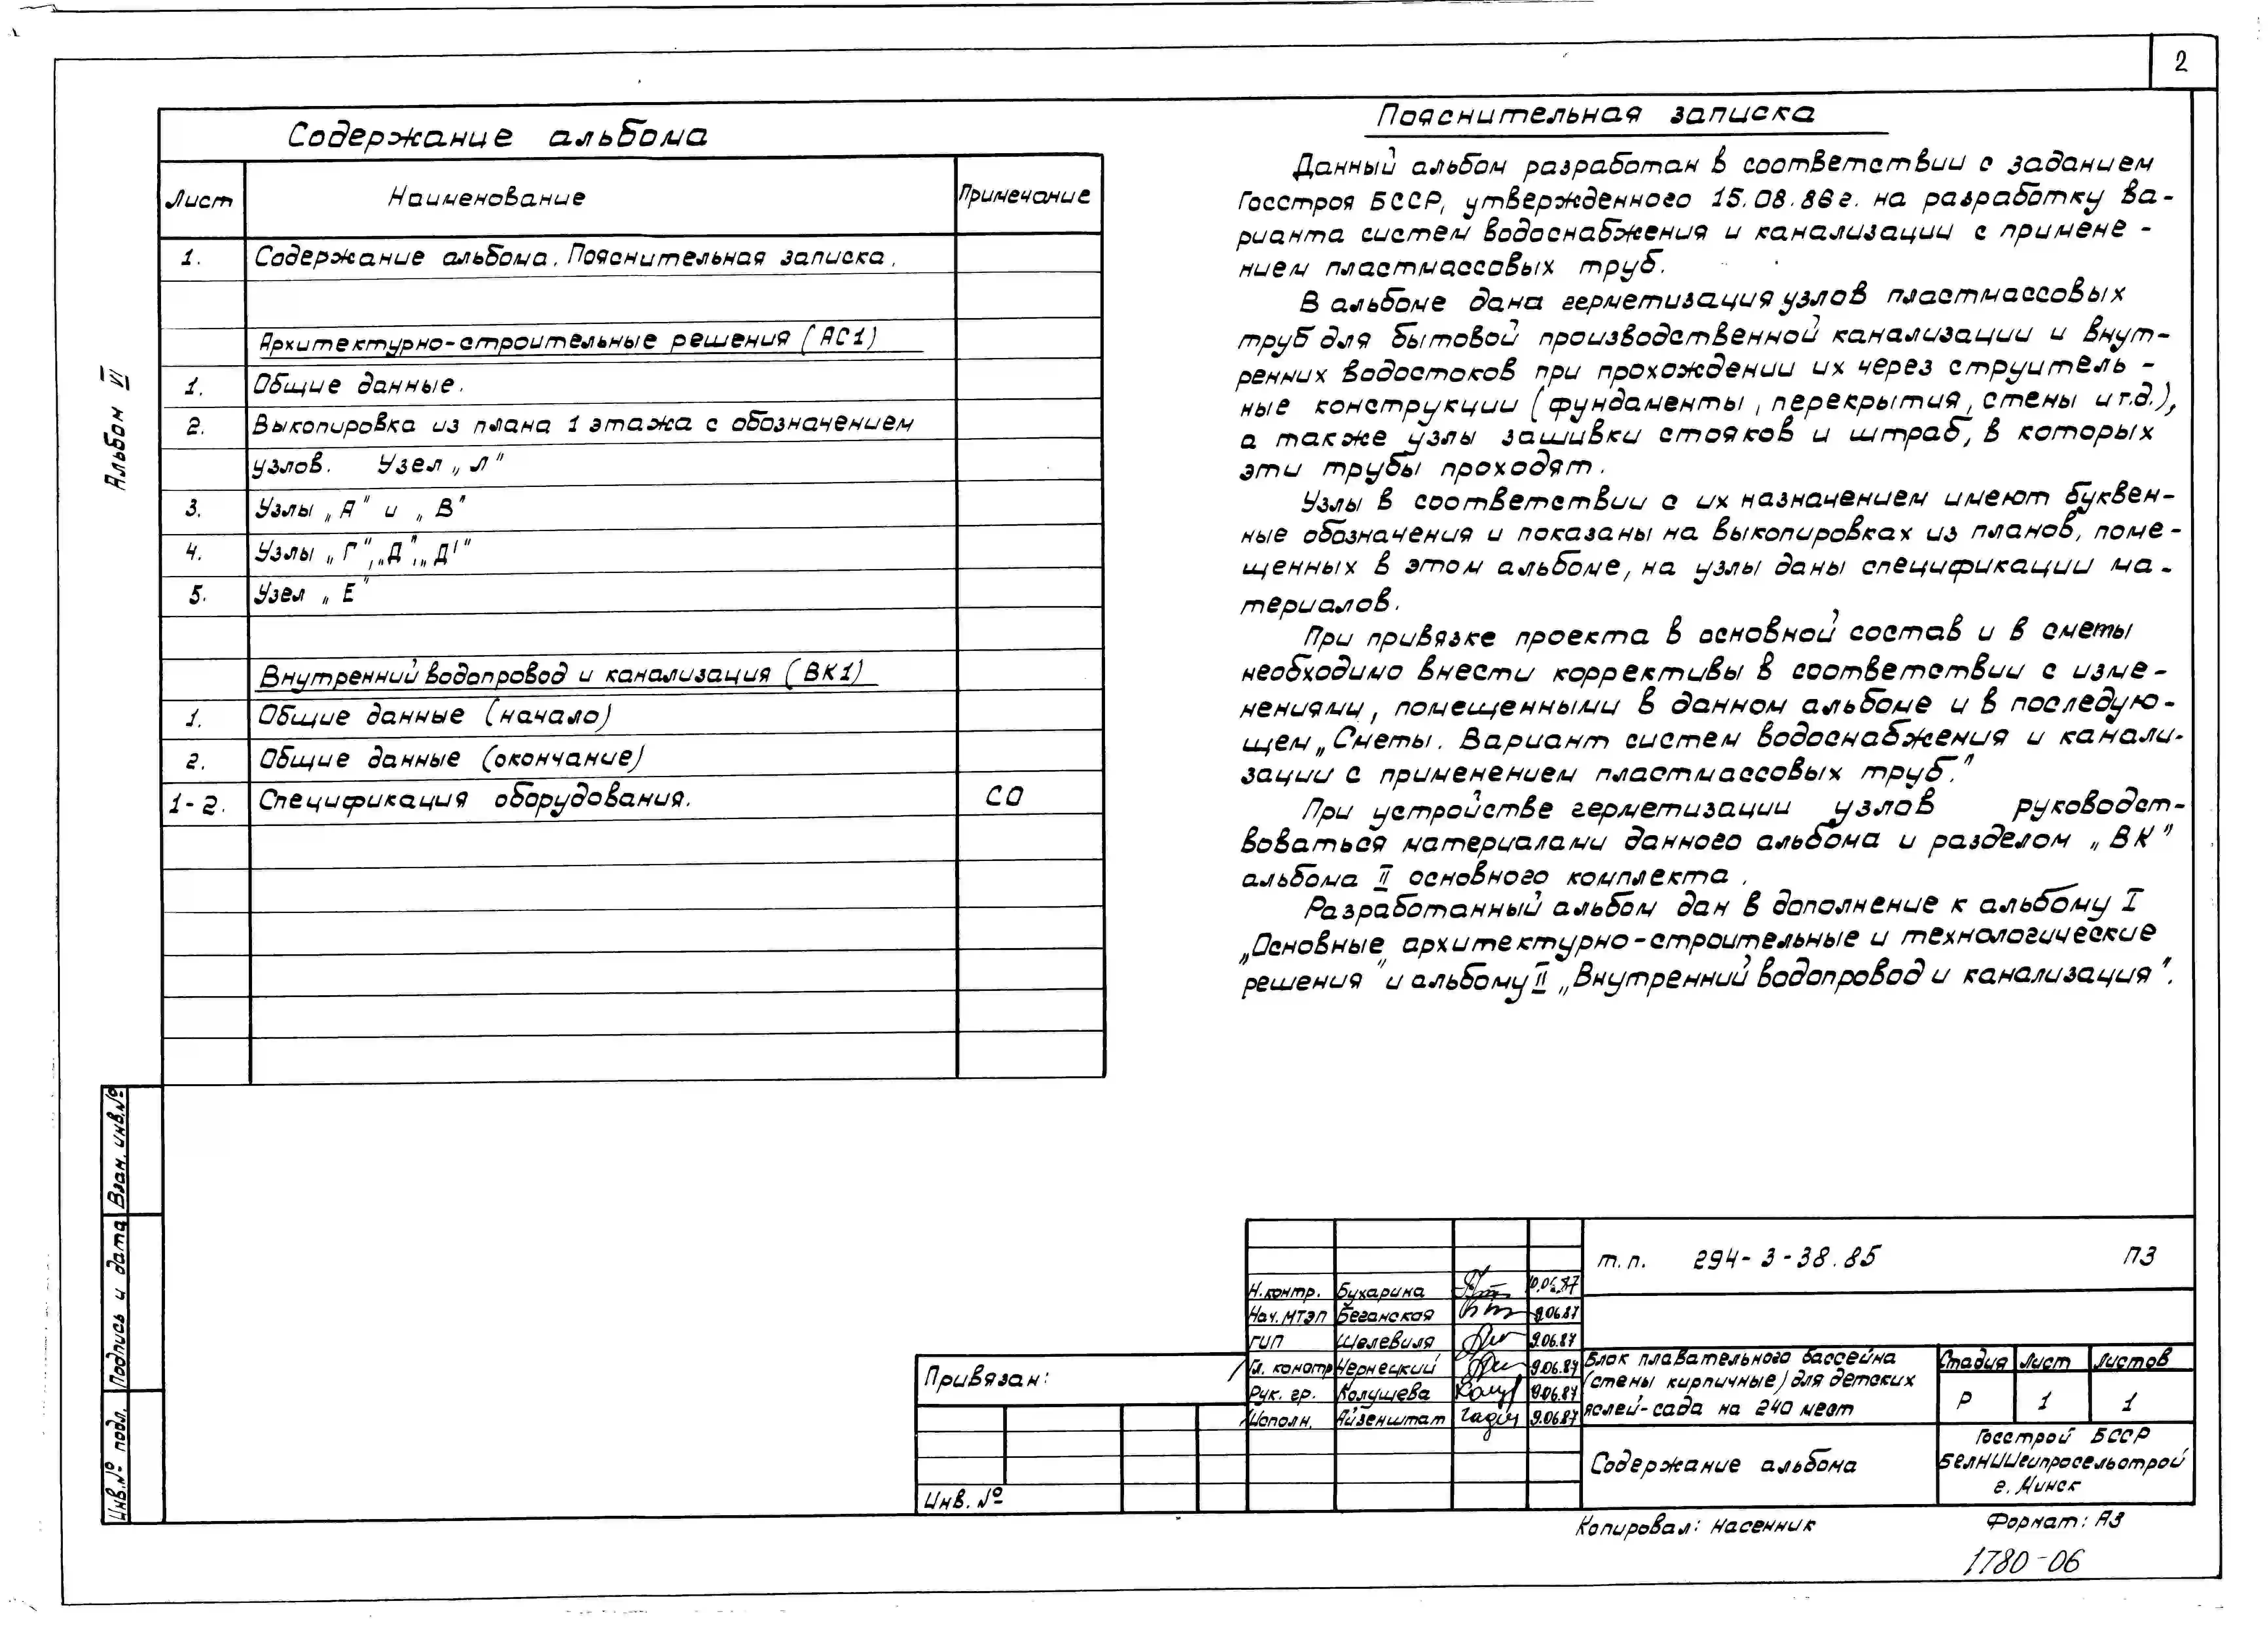 2
Альбом VI
Содержание альбома
Лист Наименование Примечание
1. Содержание альбома. Пояснительная записка.
Архитектурно-строительные решения (АС1)
1. Общие данные.
2. Выкопировка из плана 1 этажа с обозначением
узлов. Узел „Л"
3. Узлы „А" и „В"
4. Узлы „Г", „Д", „Д¹"
5. Узел „Е"
Внутренний водопровод и канализация (ВК1)
1. Общие данные (начало)
2. Общие данные (окончание)
1-2. Спецификация оборудования. СО
Пояснительная записка
Данный альбом разработан в соответствии с заданием
Госстроя БССР, утвержденного 15.08.86г. на разработку ва-
рианта систем водоснабжения и канализации с примене-
нием пластмассовых труб.
В альбоме дана герметизация узлов пластмассовых
труб для бытовой производственной канализации и внут-
ренних водостоков при прохождении их через струитель-
ные конструкции (фундаменты, перекрытия, стены и т.д.),
а также узлы зашивки стояков и штраб, в которых
эти трубы проходят.
Узлы в соответствии с их назначением имеют буквен-
ные обозначения и показаны на выкопировках из планов, поме-
щенных в этом альбоме, на узлы даны спецификации ма-
териалов.
При привязке проекта в основной состав и в сметы
необходимо внести коррективы в соответствии с изме-
нениями, помещенными в данном альбоме и в последую-
щем „Сметы. Вариант систем водоснабжения и канали-
зации с применением пластмассовых труб."
При устройстве герметизации узлов руководст-
воваться материалами данного альбома и разделом „ВК"
альбома II основного комплекта.
Разработанный альбом дан в дополнение к альбому I
„Основные архитектурно-строительные и технологические
решения" и альбому II „Внутренний водопровод и канализация".
Взам. инв.№
Подпись и дата
Инв.№ подл.
Привязан:
Инв. №
Н.контр. Бухарина
Нач. МТЭП Беганская 9.06.87
ГИП Шелевиля 9.06.87
Гл. констр Чернецкий 9.06.87
Рук. гр. Колушева 9.06.87
Исполн. Айзенштат 9.06.87
т.п. 294-3-38.85 ПЗ
Блок плавательного бассейна
(стены кирпичные) для детских
яслей-сада на 240 мест
Стадия Лист Листов
Р 1 1
Содержание альбома
Госстрой БССР
БелНИИгипросельстрой
г. Минск
Копировал: Насенник Формат: А3
1780-06